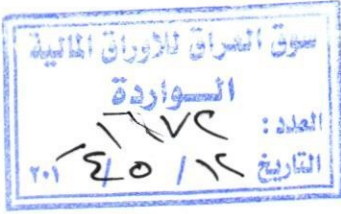 سوق العراق للاوراق المالية
الــواردة
العدد :
التاريخ ١٢ / ٥ / ٢٠١٤